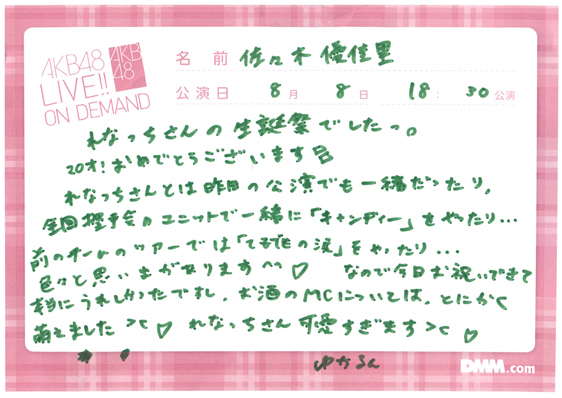 AKB48
LIVE!!
ON DEMAND
AKB
48
名 前 佐々木優佳里
公演日 8月 8日 18:30公演
れなっちさんの生誕祭でしたっ。
20才!おめでとうございます
れなっちさんとは昨日の公演でも一緒だったり、
全国握手会のユニットで一緒に「キャンディー」をやったり...
前のチームのツアーでは「てもでもの涙」をやったり...
色々と思い出があります^^♡ なので今日お祝いできて
本当にうれしかったですし、お酒のMCについては、とにかく
萌えました>< ♡ れなっちさん可愛すぎます>< ♡
ゆかるん
DMM.com